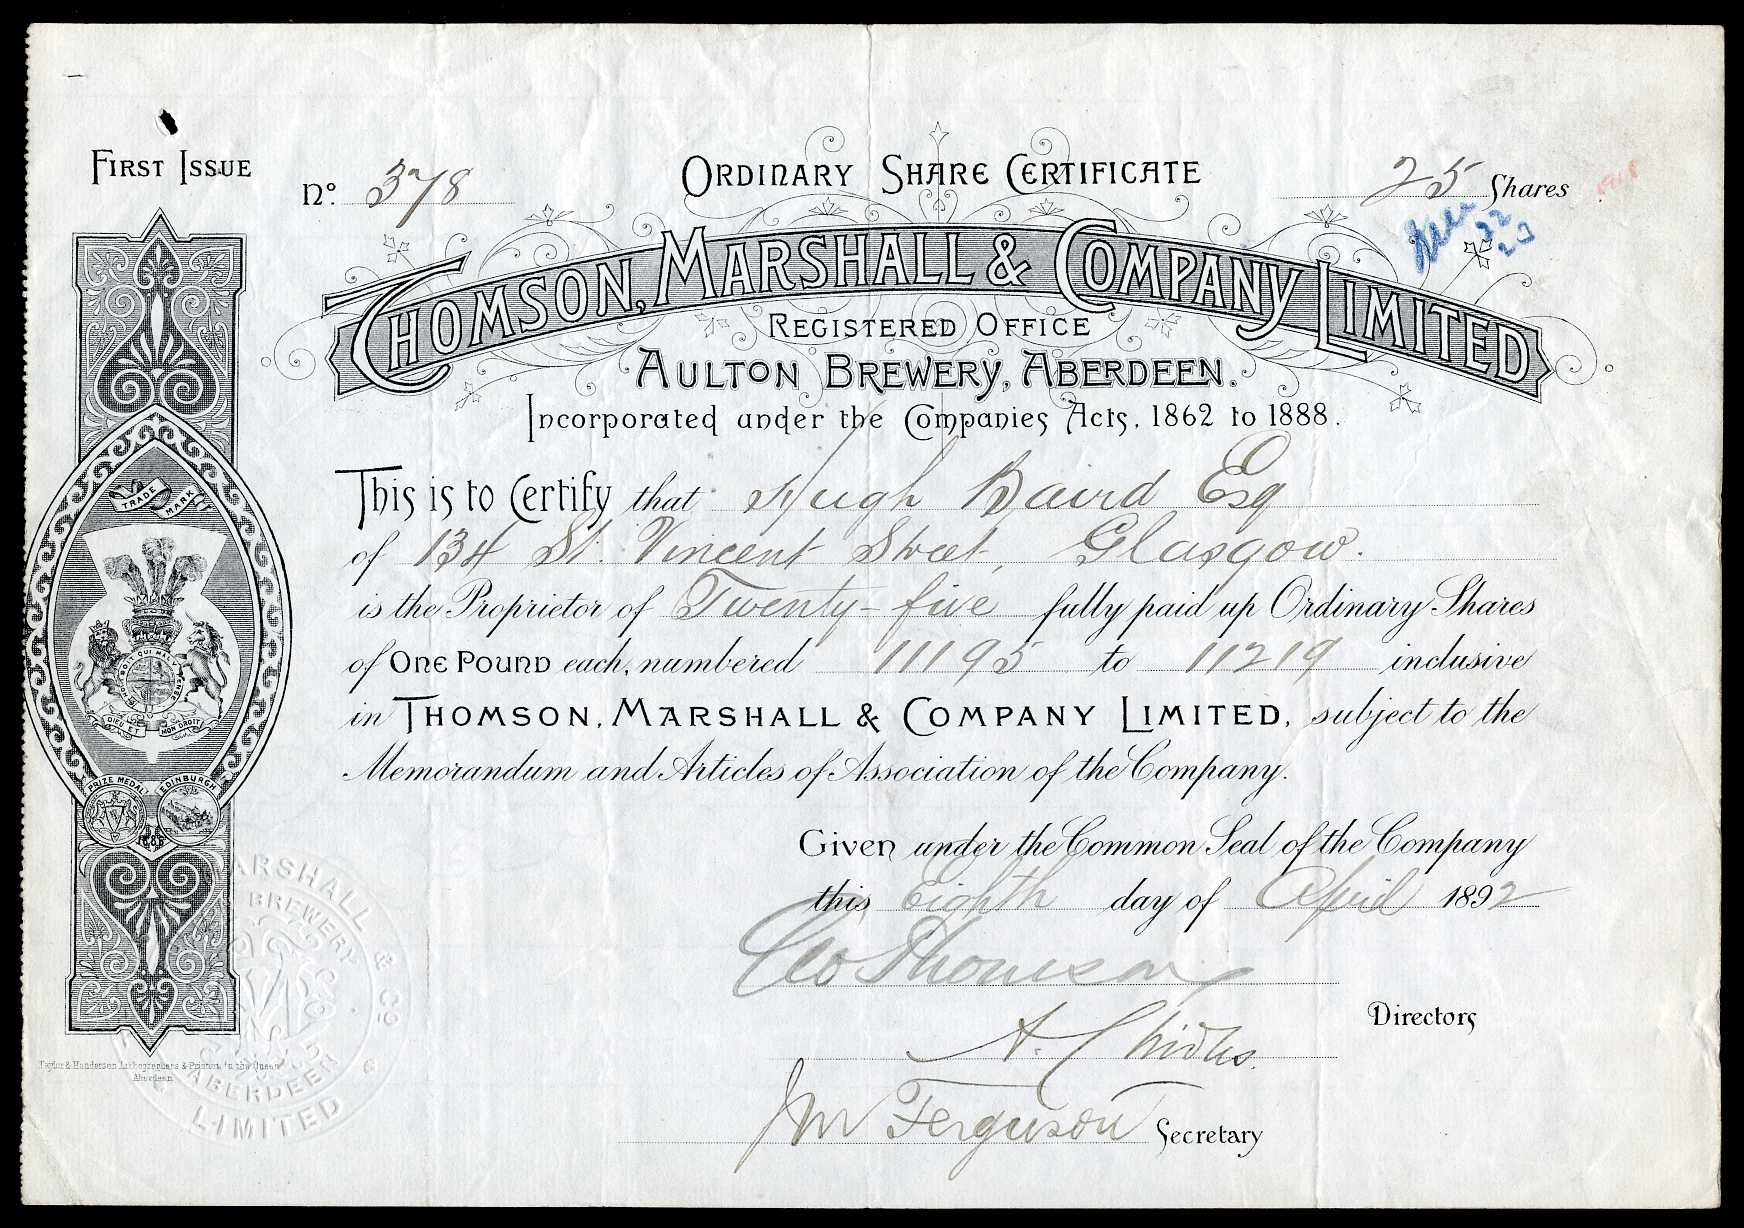 FIRST ISSUE
No. 378
ORDINARY SHARE CERTIFICATE
25 Shares
THOMSON, MARSHALL & COMPANY LIMITED
REGISTERED OFFICE
AULTON BREWERY, ABERDEEN.
Incorporated under the Companies Acts, 1862 to 1888.
This is to Certify that Hugh Baird Esq
of 134 St. Vincent Street, Glasgow.
is the Proprietor of Twenty-five fully paid up Ordinary Shares
of ONE POUND each, numbered 11195 to 11219 inclusive
in THOMSON, MARSHALL & COMPANY LIMITED, subject to the
Memorandum and Articles of Association of the Company.
Given under the Common Seal of the Company
this Eighth day of April 1892
Geo Thomson
Directors
Jn Ferguson Secretary
TRADE MARK
HONI SOIT QUI MAL Y PENSE
DIEU ET MON DROIT
PRIZE MEDAL EDINBURGH
MARSHALL & CO
BREWERY
ABERDEEN
LIMITED
Taylor & Henderson Lithographers & Printers to the Queen
Aberdeen